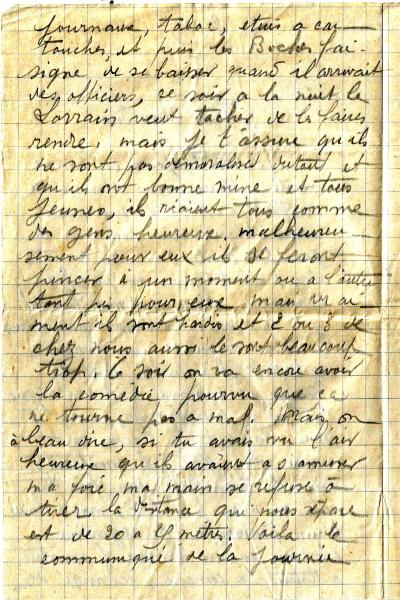 journaux, tabac, etuis a car
touches, et puis les Boches fai-
signe de se baisser quand il arrivait
des officiers, ce soir a la nuit le
Lorrain veut tacher de le faires
rendre, mais je t'assure qu'ils
ne sont pas démoralisés du tout et
qu'ils ont bonne mine et tous
jeunes, ils riaient tous comme
des gens heureux. malheureu-
sement pour eux il se feront
pincer à un moment ou a l'autre
tant pis pour eux mais
ment il sont hardis et 2 ou 3 de
chez nous aussi le sont beaucoup
trop. le soir on va encore avoir
la comédie pourvu que ca
ne tourne pas a mal. Mais on
à beau dire, si tu avais vu l'air
heureux qu'il avaient a s'amuser
ma foie ma main se refuse à
tirer la distance qui nous sépare
est de 20 a metres. Voila le
communiqué de la journée